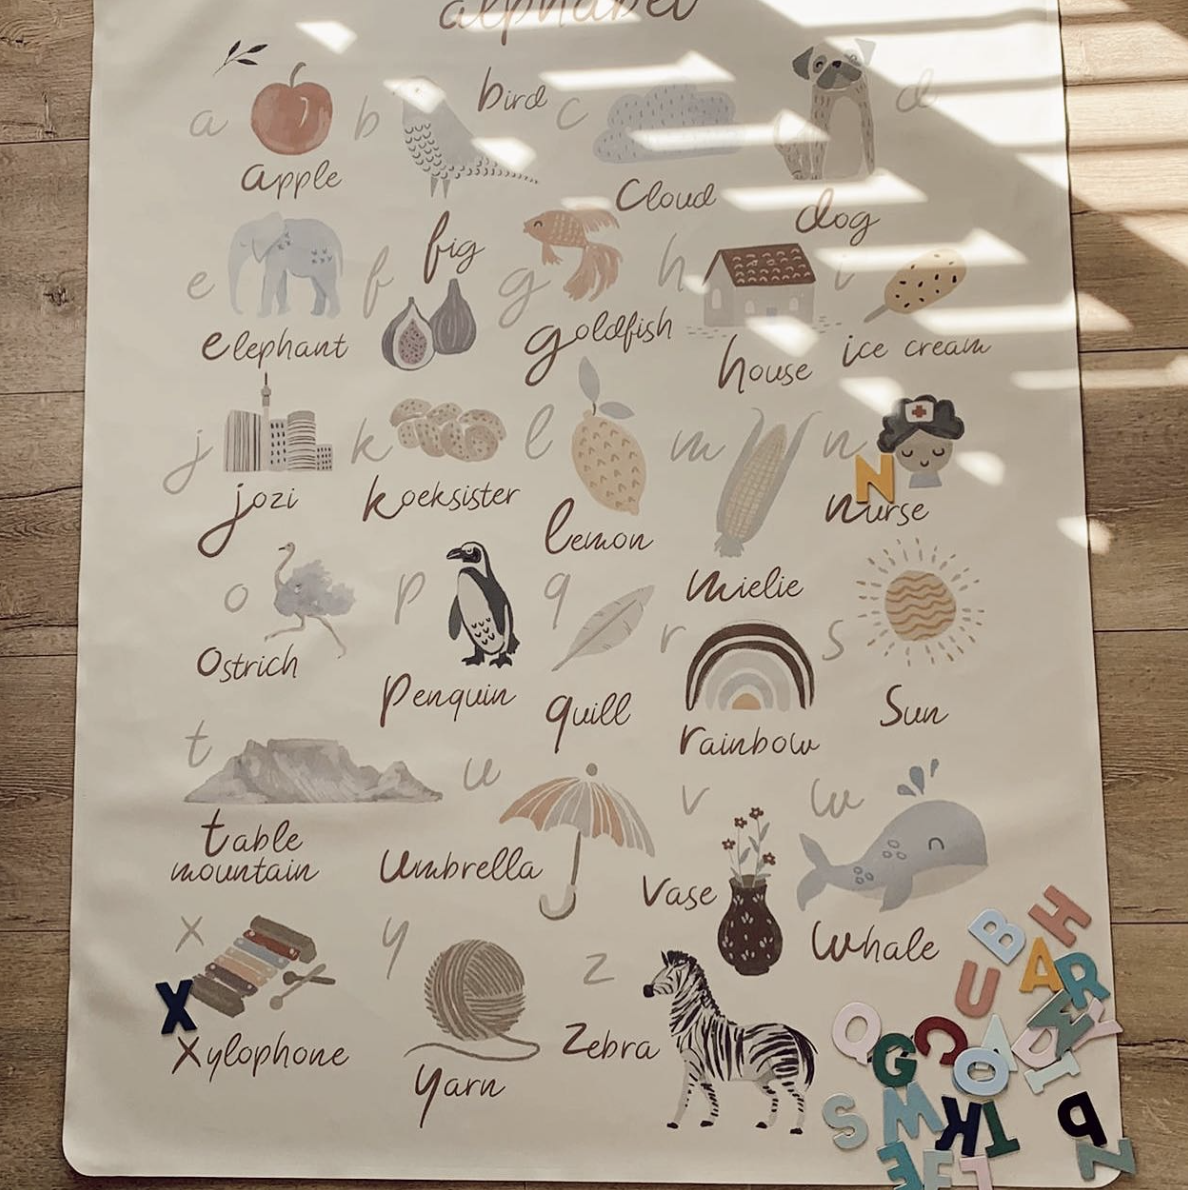 alphabet
a
apple
b
bird
c
Cloud
d
dog
e
elephant
f
fig
g
goldfish
h
house
i
ice cream
j
jozi
k
koeksister
l
lemon
m
mielie
n
N
nurse
o
Ostrich
p
Penquin
q
quill
r
rainbow
s
Sun
t
table
mountain
u
Umbrella
v
Vase
w
Whale
x
X
Xylophone
y
Yarn
z
Zebra
H
B
A
R
U
M
Y
Q
G
C
V
D
O
I
S
W
K
T
P
Z
E
F
L